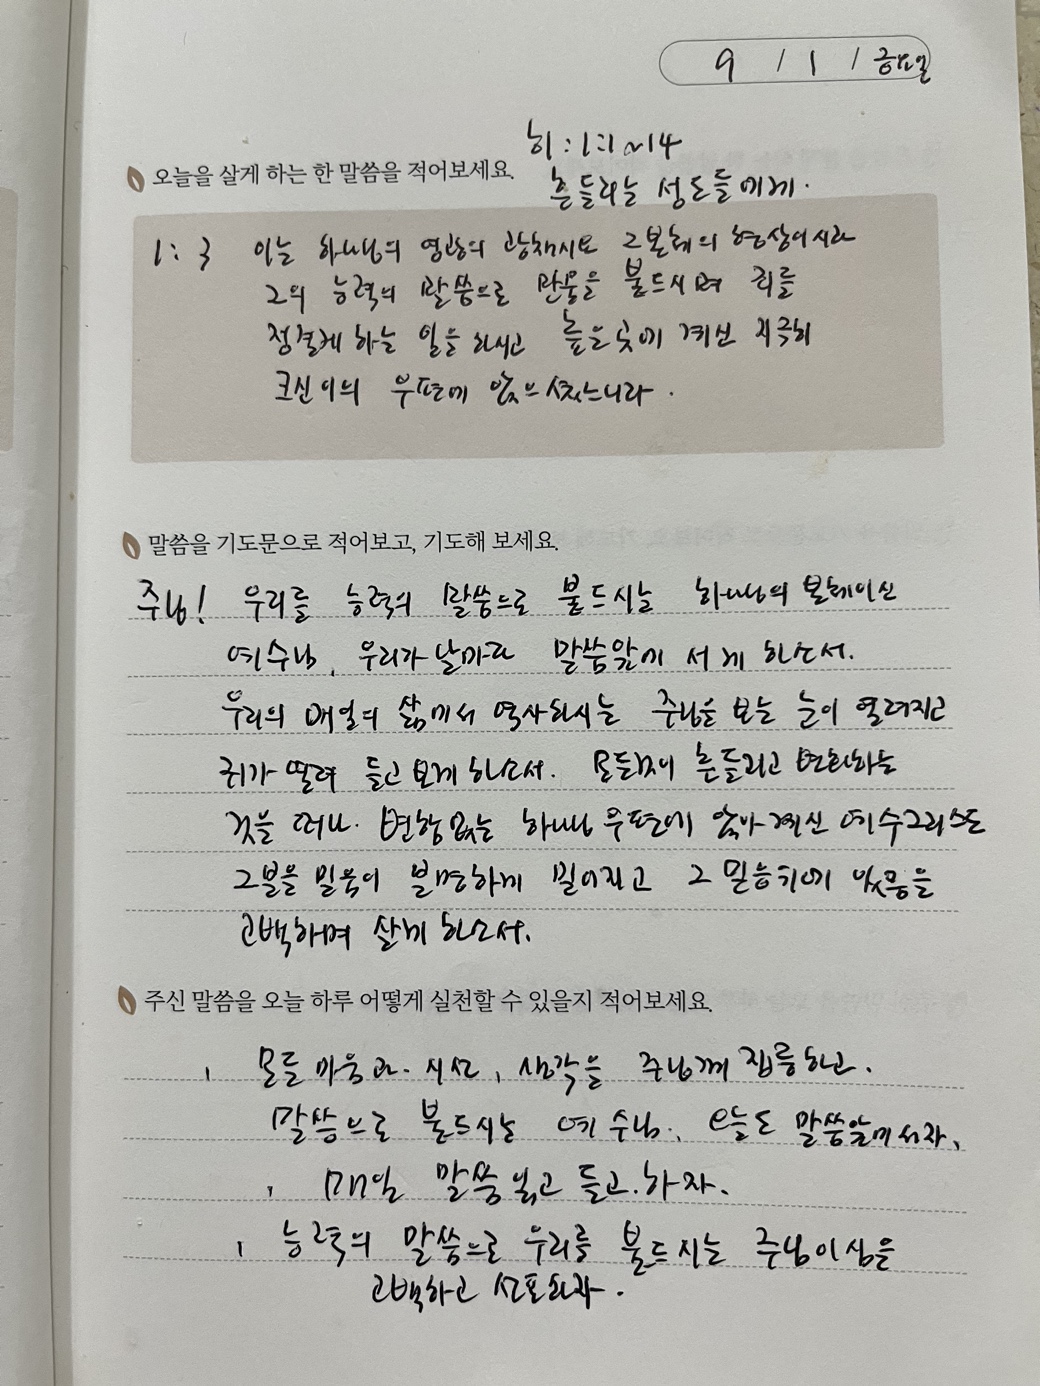 9 / 1 / 금요일
히 : 1:1~14
오늘을 살게 하는 한 말씀을 적어보세요.
흔들리는 성도들에게.
1 : 3 이는 하나님의 영광의 광채시요 그 본체의 형상이시라
그의 능력의 말씀으로 만물을 붙드시며 죄를
정결케 하는 일을 하시고 높은 곳에 계신 지극히
크신 이의 우편에 앉으셨느니라.
말씀을 기도문으로 적어보고, 기도해 보세요.
주님! 우리를 능력의 말씀으로 붙드시는 하나님의 본체이신
예수님, 우리가 날마다 말씀앞에 서게 하소서.
우리의 매일의 삶에서 역사하시는 주님을 보는 눈이 열려지고
귀가 열려 듣고 보게 하소서. 모든것이 흔들리고 변화하는
것을 떠나. 변함없는 하나님 우편에 앉아 계신 예수그리스도
그분을 믿음이 분명하게 믿어지고 그 믿음위에 있음을
고백하며 살게 하소서.
주신 말씀을 오늘 하루 어떻게 실천할 수 있을지 적어보세요.
, 모든 마음과. 시선, 생각을 주님께 집중하고.
말씀으로 붙드시는 예수님. 오늘도 말씀앞에 서자,
, 매일 말씀 읽고 듣고. 하자.
, 능력의 말씀으로 우리를 붙드시는 주님이심을
고백하고 선포하자.